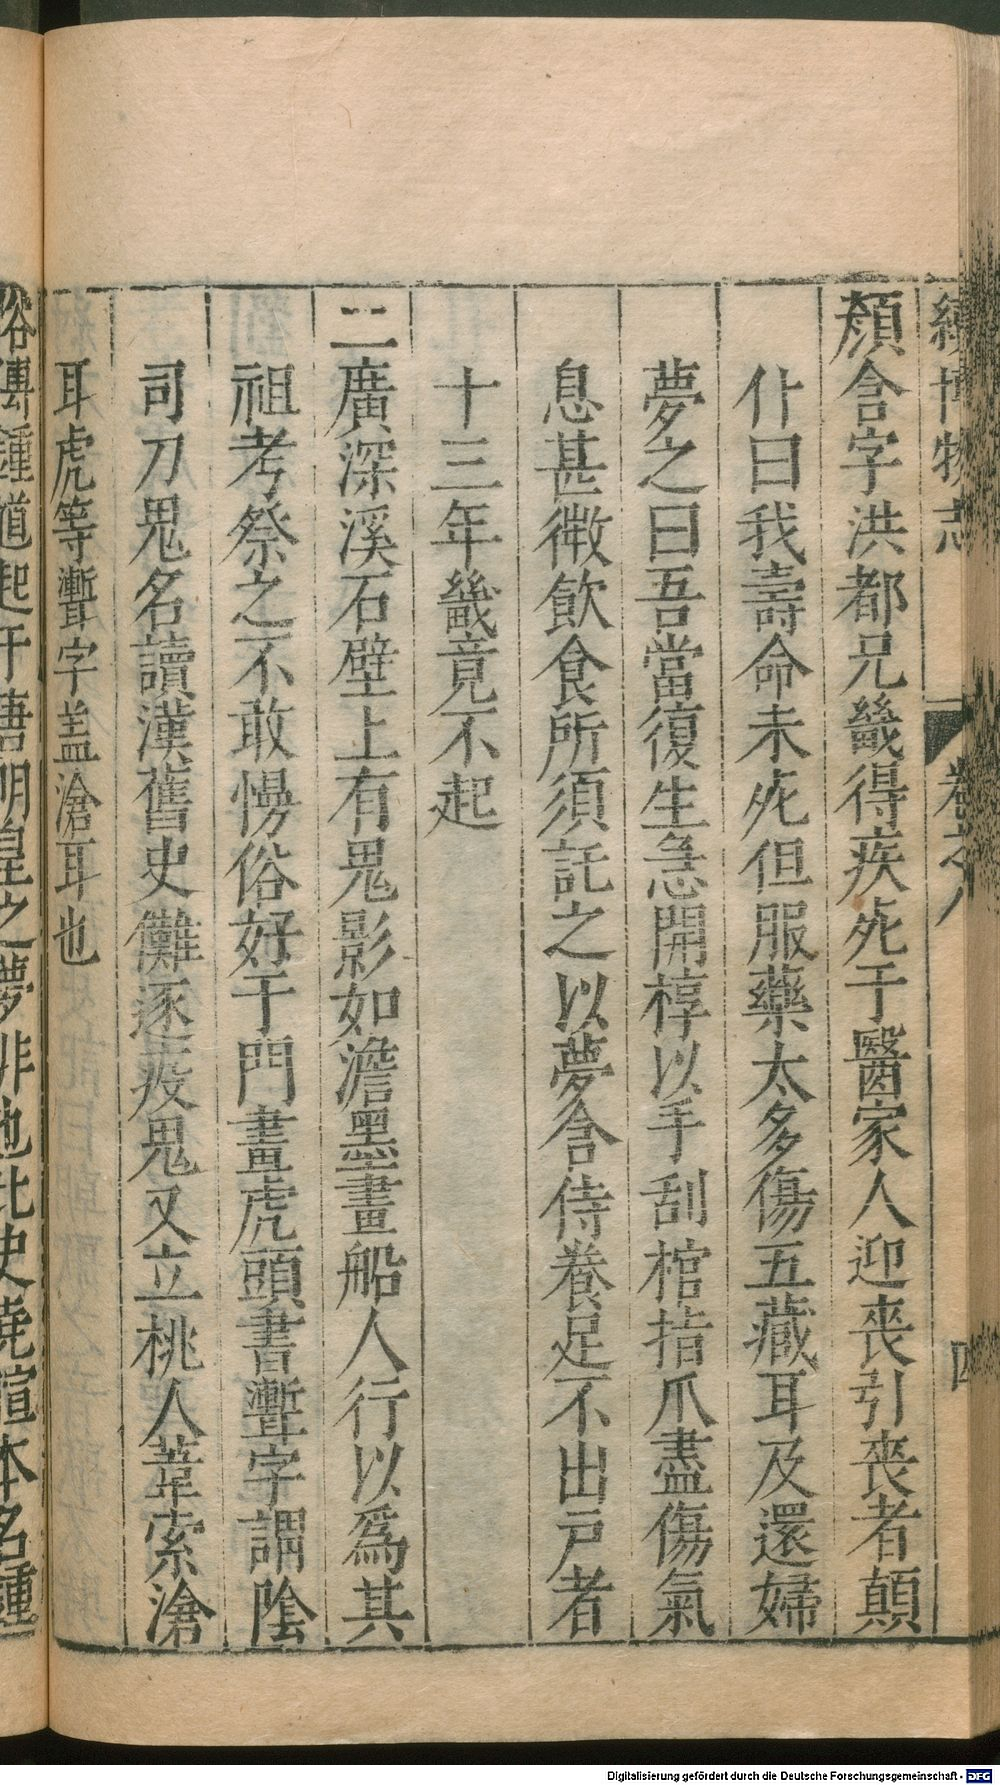 續博物志 卷之八 四
顏含字洪都兄畿得疾死于醫家人迎喪引喪者顛
仆曰我壽命未死但服藥太多傷五藏耳及還婦
夢之曰吾當復生急開椁以手刮棺指爪盡傷氣
息甚微飲食所須託之以夢含侍養足不出戸者
十三年畿竟不起
二廣深溪石壁上有鬼影如澹墨畫船人行以爲其
祖考祭之不敢慢俗好于門畫虎頭書聻字謂陰
司刀鬼名讀漢舊史儺逐疫鬼又立桃人葦索滄
耳虎等聻字盖滄耳也
俗傳鍾馗起于唐明皇之夢非也北史堯暄本名鍾
Digitalisierung gefördert durch die Deutsche Forschungsgemeinschaft - DFG